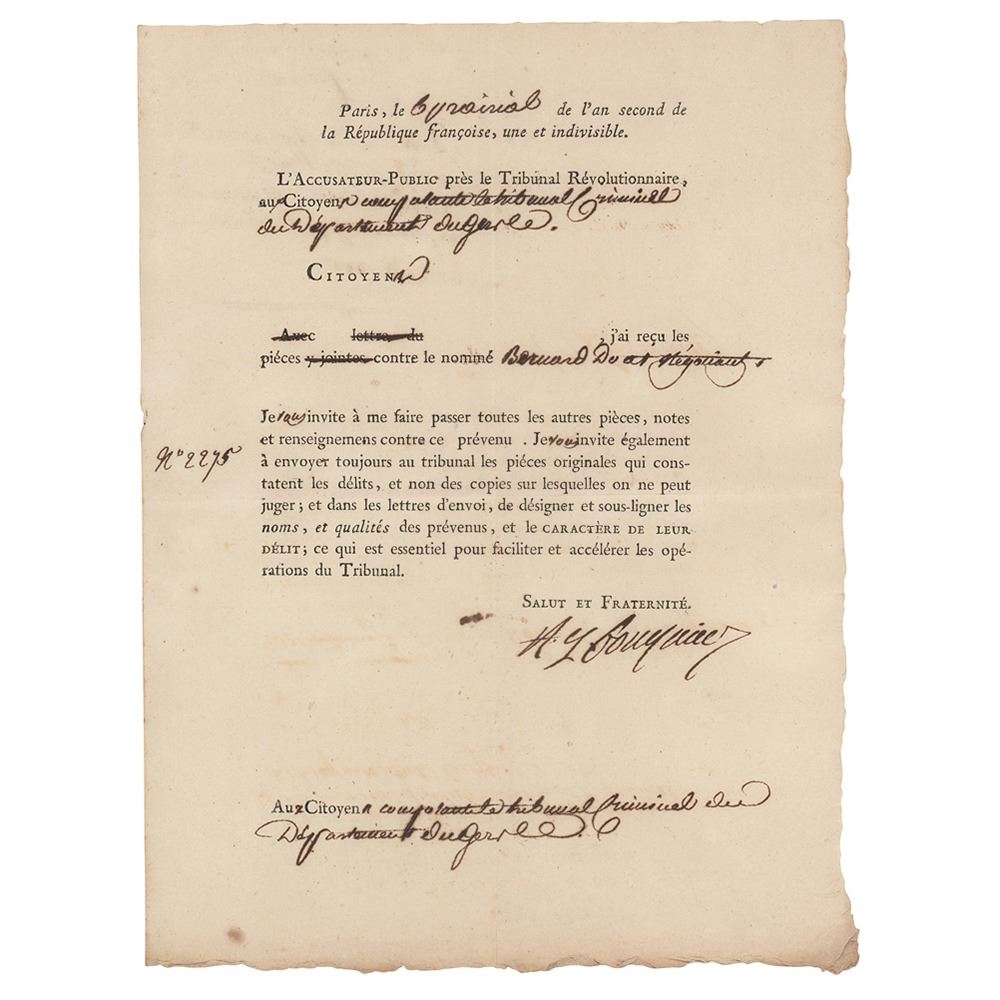 Paris, le 6 prairial de l'an second de
la République françoise, une et indivisible.
L'Accusateur-Public près le Tribunal Révolutionnaire,
aux Citoyens composants le tribunal Criminel
du Département du Gers.
Citoyens
Avec lettre du , j'ai reçu les
piéces y jointes contre le nommé Bernard Duat Négociant
Je vous invite à me faire passer toutes les autres pièces, notes
et renseignemens contre ce prévenu . Je vous invite également
N° 2275
à envoyer toujours au tribunal les piéces originales qui cons-
tatent les délits, et non des copies sur lesquelles on ne peut
juger ; et dans les lettres d'envoi, de désigner et sous-ligner les
noms, et qualités des prévenus, et le caractère de leur
délit ; ce qui est essentiel pour faciliter et accélérer les opé-
rations du Tribunal.
Salut et Fraternité.
A. Q. Fouquier
Aux Citoyens composants le tribunal Criminel du
Département du Gers